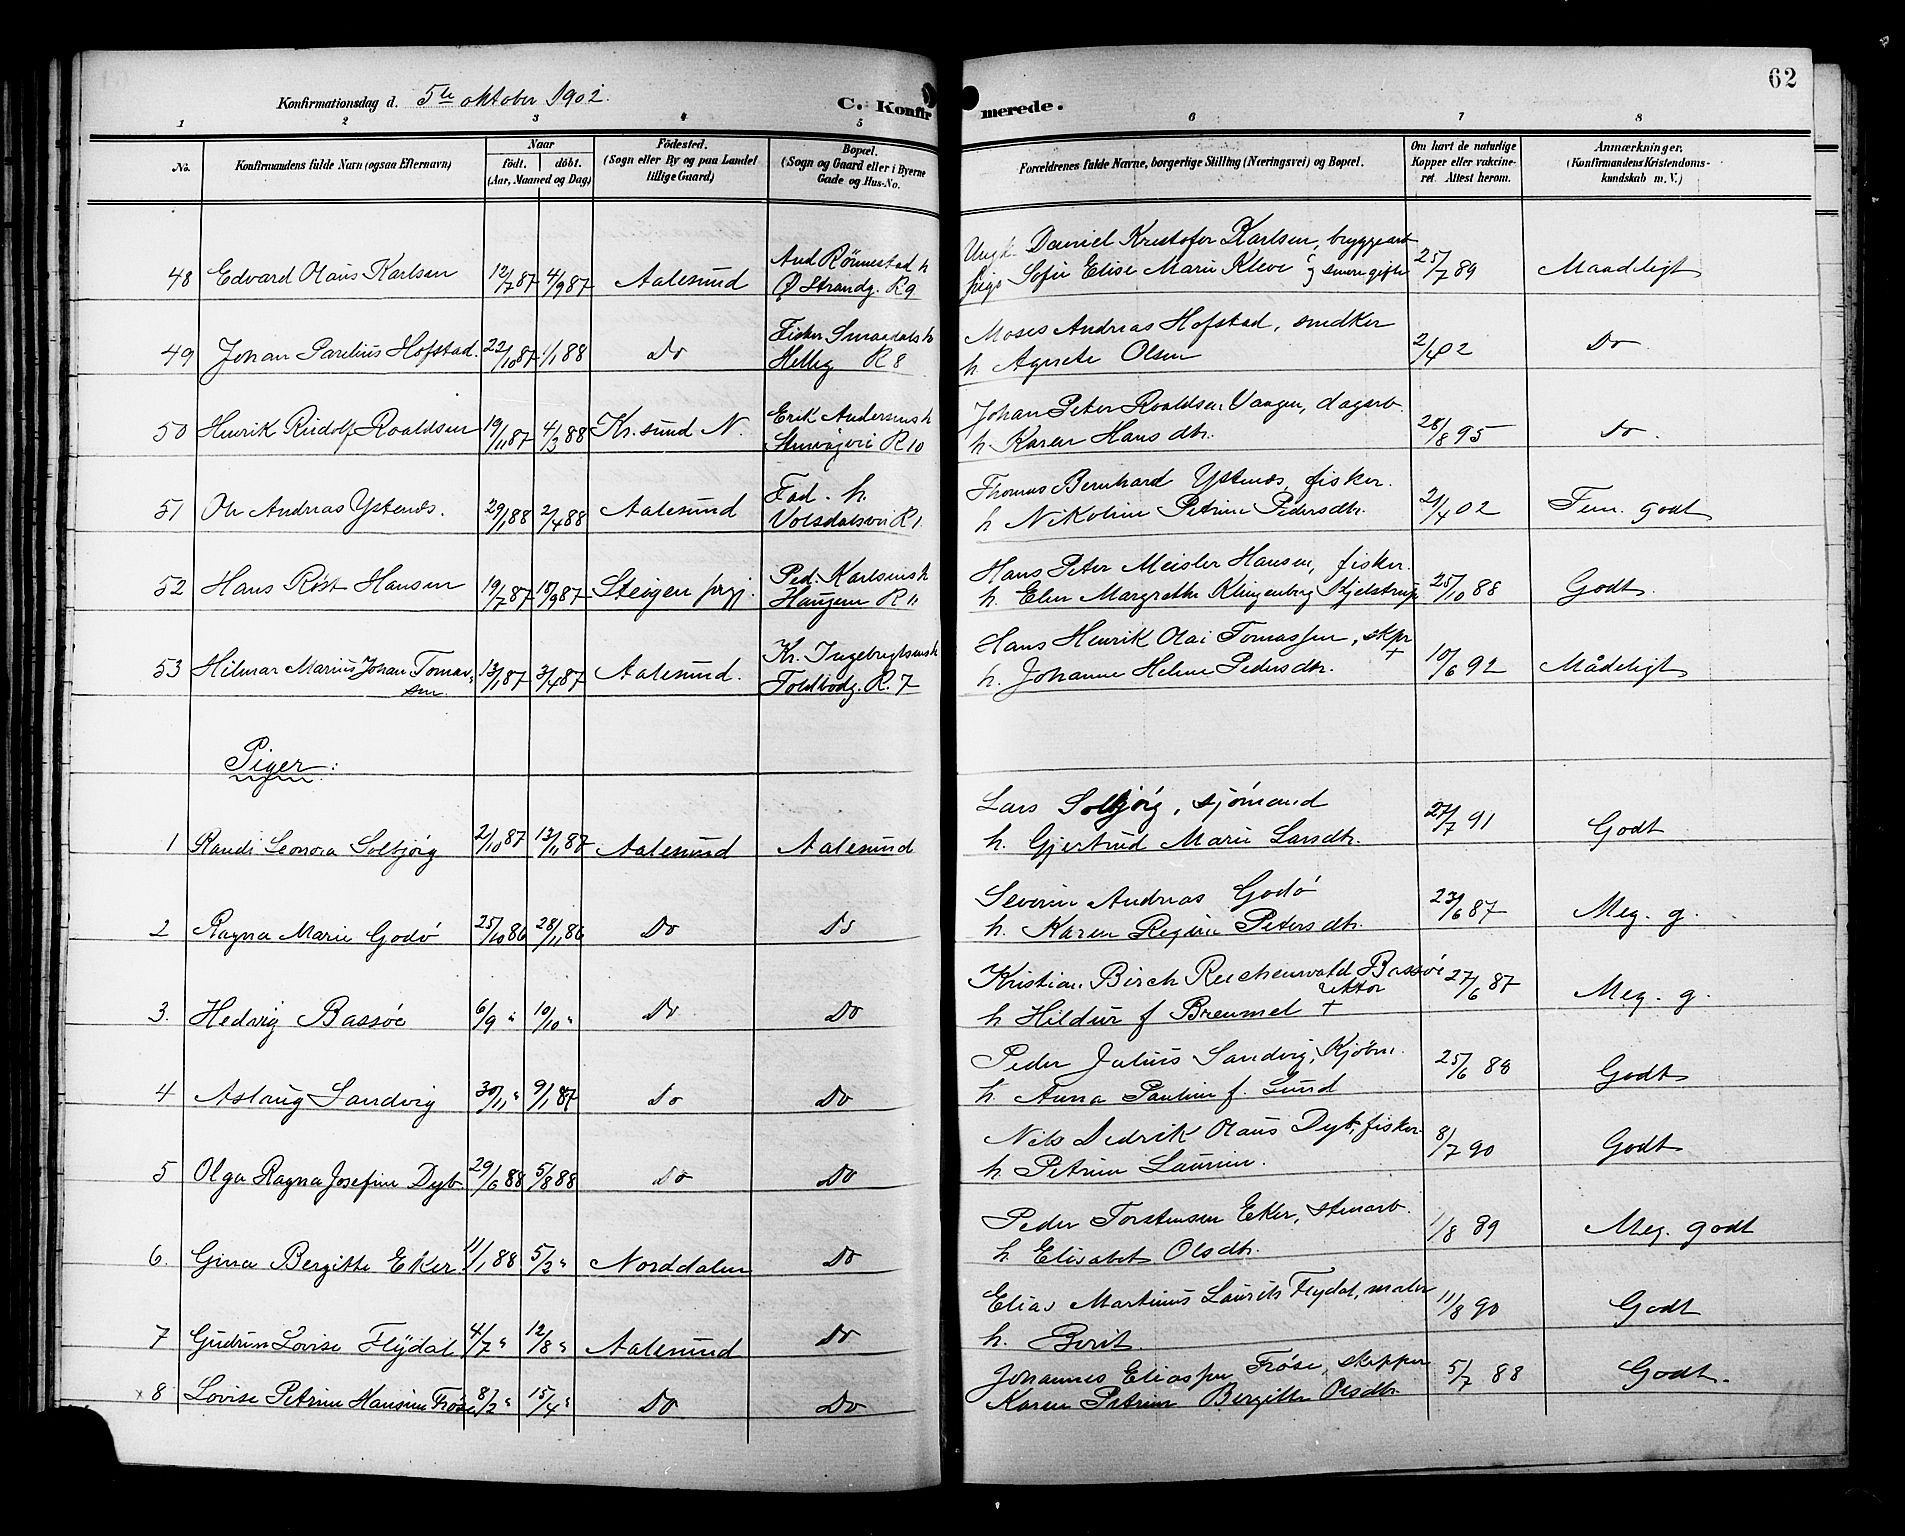 62
Konfirmationsdag d. 5te oktober 1902.
C. Konfirmerede.
1 2 3 4 5 6 7 8
No. Konfirmandens fulde Navn (ogsaa Efternavn) Naar født. døbt. (Aar, Maaned og Dag) Fødested. (Sogn eller By og paa Landet tillige Gaard) Bopæl. (Sogn og Gaard eller i Byerne Gade og Hus-No. Forældrenes fulde Navne, borgerlige Stilling (Næringsvei) og Bopæl. Om havt de naturlige Kopper eller vaccineret. Attest herom. Anmærkninger. (Konfirmandens Kristendomskundskab m. V.)
And Rønnestad h Daniel Kristofer Karlsen, bryggearb
48 Edvard Olaus Karlsen 12/7 87 4/9 87 Aalesund Ø Strandg. R 9 pige Sofie Elise Marie Kleve 25/7 89 Maadeligt
Fisker h Moses Andreas Hofstad, snedker
49 Johan Parelius Hofstad. 22/10 87 1/1 88 Do Helleg R 8 h. Agnete Olsen 2/4 02 Do
Erik Andersens h Johan Peter Roaldsen Vaagen, dagarb.
50 Henrik Rudolf Roaldsen 19/11 87 4/3 88 Kr.sund N. R 10 h. Karen Hansdtr. 28/8 95 Do.
Fad. h. Thomas Bernhard Ystenes, fisker.
51 Ole Andreas Ystenes. 29/1 88 2/4 88 Aalesund Volsdalsvei R 1. h Nikoline Petrine Pedersdtr. 21/4 02 Tem. godt
Ped. Karlsens h Hans Peter Meisler Hansen, fisker.
52 Hans Rist Hansen 19/7 87 18/9 87 Steigen prgj. Haugen R 11 h. Elen Margrethe Klingenberg Stjelstrup 25/10 88 Godt.
Kr. Ingebrigtsens h Hans Henrik Olai Tomassen, skpr +
53 Hilmar Marius Johan Tomassen 13/1 87 3/4 87 Aalesund. Toldbodg. R. 7 h. Johanne Helene Pedersdtr. 10/6 92 Mådeligt
Piger:
Lars Solbjørg, sjømand
1 Randi Leonora Solbjørg 2/10 87 13/11 87 Aalesund Aalesund h. Gjertrud Marie Larsdtr. 27/7 91 Godt
Severin Andreas Godø
2 Ragna Marie Godø 25/10 86 28/11 86 Do Do h. Karen Regine Petersdtr. 23/6 87 Meg. g.
Kristian Birch Reichenwald Bassøe rektor
3. Hedvig Bassøe 6/9 " 10/10 " Do Do h Hildur f Bremmel + 27/6 87 Meg. g.
Peder Julius Sandvig, Kjøbm.
4 Aslaug Sandvig 30/11 " 9/1 87 Do Do h. Anna Pauline f. Lund 25/6 88 Godt
Nils Didrik Olaus Dyb, fisker
5 Olga Ragna Josefine Dyb. 29/6 88 5/8 88 Do Do h Petrine Laurine. 8/7 90 Godt
Peder Torstensen Eker, stenarb.
6. Gina Bergitte Eker 11/1 88 5/2 " Norddalen Do h Elisabet Olsdtr. 1/8 89 Meg. godt
Elias Martinus Laurits Flydal, maler
7 Gudrun Lovise Flydal 4/7 " 12/8 " Aalesund Do h. Berit. 11/8 90 Godt
Johannes Eliassen Frøse, skipper
x 8 Lovise Petrine Hansine Frøse 8/2 " 15/4 " Do Do Karen Petrine Bergitte Olsdtr. 5/7 88 Godt.